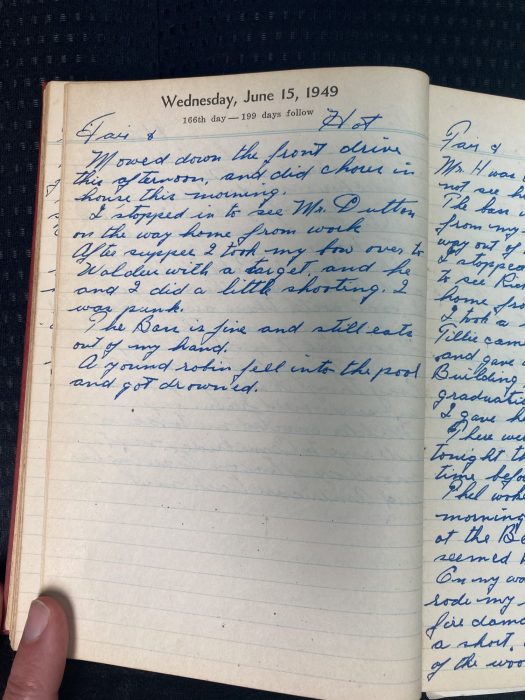 Wednesday, June 15, 1949
166th day — 199 days follow
Fair & Hot
Mowed down the front drive
this afternoon, and did chores in
house this morning.
I stopped in to see Mr. Dutton
on the way home from work
After supper I took my bow over to
Walder with a target, and he
and I did a little shooting. I
was punk.
The Bass is fine and still eats
out of my hand.
A yound robin fell into the pool
and got drowned.
Fair &
Mr. H was
not see
The bass
from my
way out of
I stopped
to see
home
I took a
Tillie came
and gave
Building
graduati
I gave he
There we
tonight th
time befo
Phel woke
morning
at the Be
seemed
On my wa
rode my
fire dama
a short,
of the woo